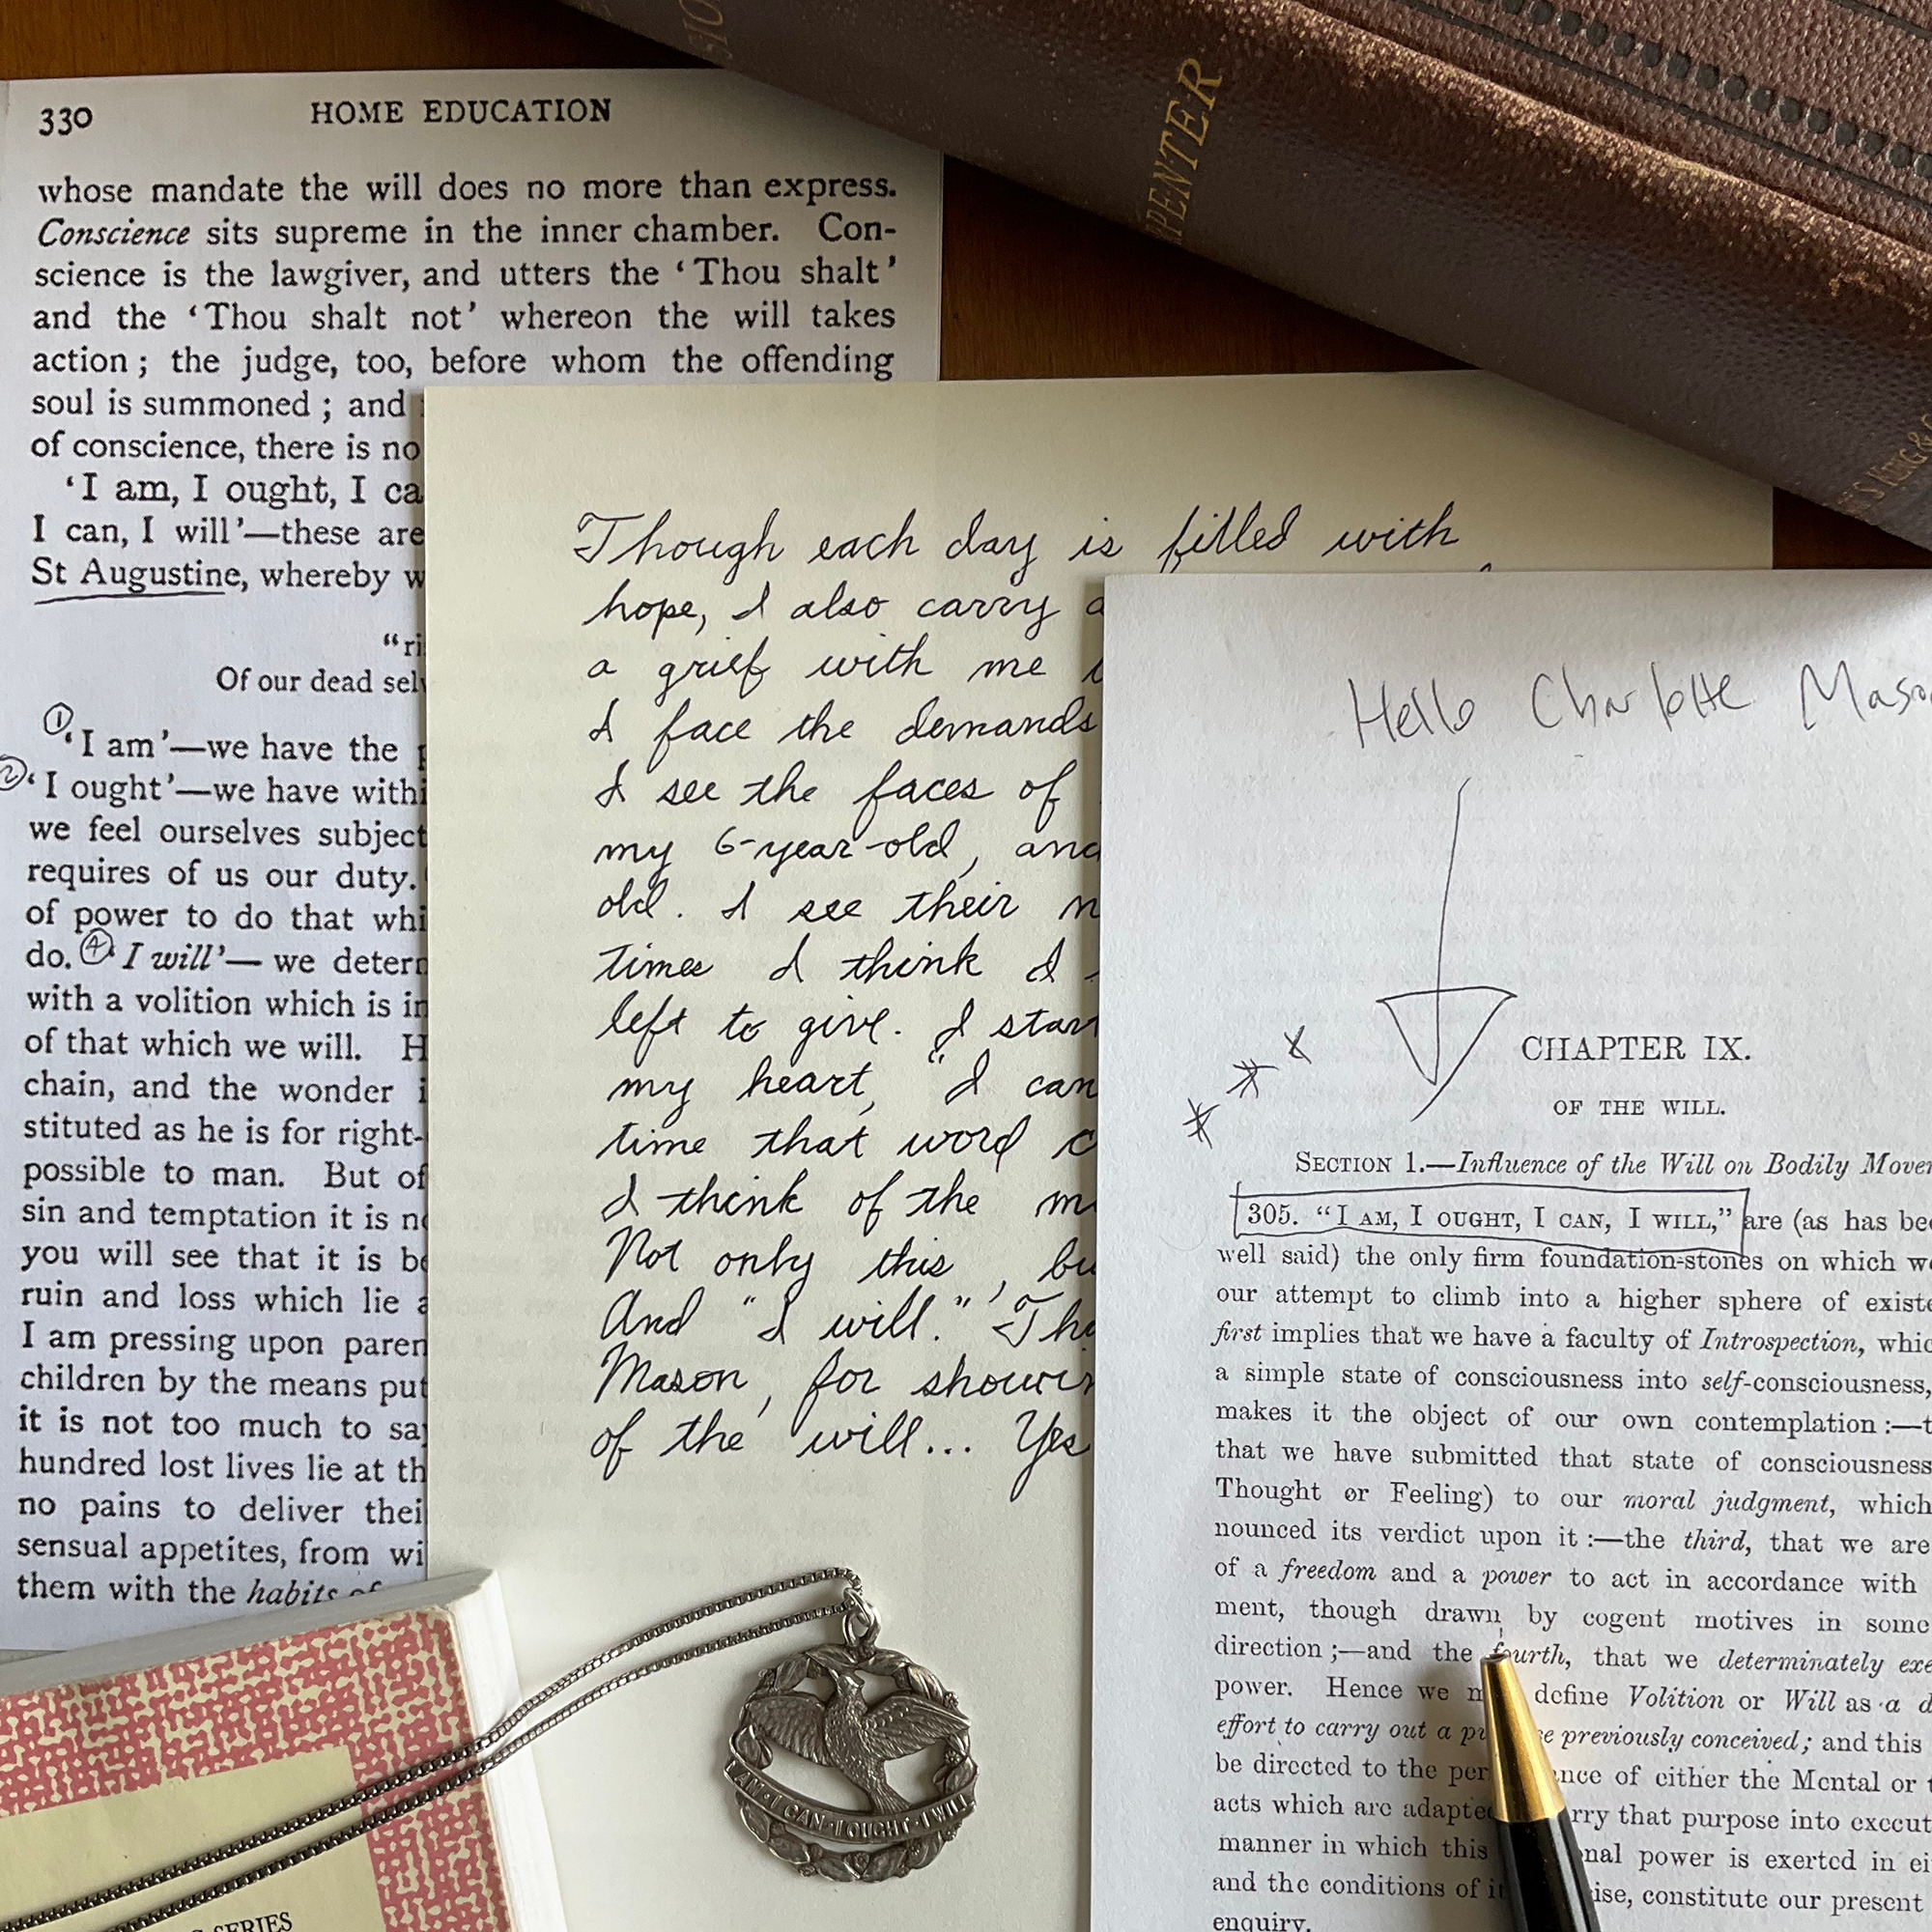 330 HOME EDUCATION
whose mandate the will does no more than express.
Conscience sits supreme in the inner chamber. Con-
science is the lawgiver, and utters the ‘Thou shalt’
and the ‘Thou shalt not’ whereon the will takes
action ; the judge, too, before whom the offending
soul is summoned ; and
of conscience, there is no
‘I am, I ought, I ca
I can, I will’—these are
St Augustine, whereby w
“ri
Of our dead sel
①
‘I am’—we have the
② ‘I ought’—we have withi
we feel ourselves subject
requires of us our duty.
of power to do that whi
do. ④ ‘I will’— we deter
with a volition which is in
of that which we will. H
chain, and the wonder i
stituted as he is for right-
possible to man. But of
sin and temptation it is n
you will see that it is be
ruin and loss which lie a
I am pressing upon paren
children by the means put
it is not too much to say
hundred lost lives lie at th
no pains to deliver thei
sensual appetites, from wi
them with the habits of
Though each day is filled with
hope, I also carry a
a grief with me
I face the demands
I see the faces of
my 6-year-old, and
old. I see their
times I think I
left to give. I start
my heart, “I can
time that word c
I think of the m
Not only this, bu
And “I will.” Tha
Mason, for showin
of the will... Yes
Hello Charlotte Mason
CHAPTER IX.
OF THE WILL.
SECTION 1.—Influence of the Will on Bodily Movem
305. “I AM, I OUGHT, I CAN, I WILL,” are (as has bee
well said) the only firm foundation-stones on which we
our attempt to climb into a higher sphere of existe
first implies that we have a faculty of Introspection, whic
a simple state of consciousness into self-consciousness,
makes it the object of our own contemplation :—t
that we have submitted that state of consciousness
Thought or Feeling) to our moral judgment, which
nounced its verdict upon it :—the third, that we are
of a freedom and a power to act in accordance with
ment, though drawn by cogent motives in some
direction ;—and the fourth, that we determinately exe
power. Hence we m define Volition or Will as a d
effort to carry out a pu se previously conceived; and this
be directed to the per nce of either the Mental or t
acts which are adapted rry that purpose into execut
manner in which this nal power is exerted in ei
and the conditions of it ise, constitute our present
enquiry.
RPENTER
S KING &
I AM · I CAN · I OUGHT · I WILL
SERIES